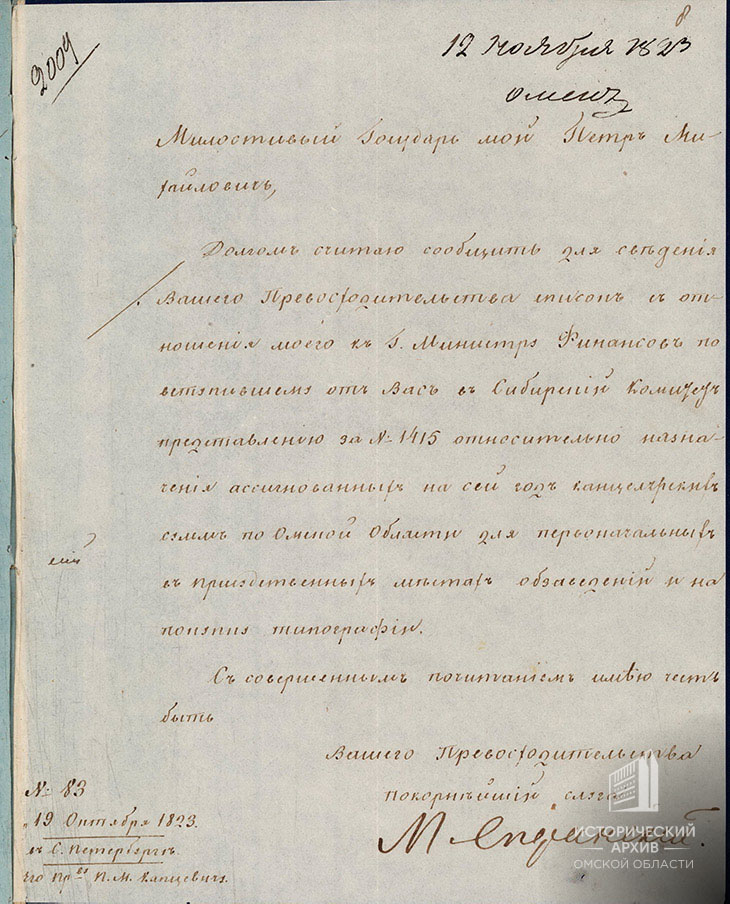 8
2009
12 ноября 1823
Омскъ
Милостивый Государь мой Петръ Ми-
хайловичъ,
Долгомъ считаю сообщить для свѣденія
Вашего Превосходительства списокъ съ от-
ношенія моего къ Г. Министру Финансовъ по
вступившему отъ Васъ въ Сибирскій Комитетъ
представленію за № 1415 относительно назна-
ченія ассигнованныхъ на сей годъ канцелярскихъ
суммъ по Омской Области для первоначальныхъ
въ присудственныхъ мѣстахъ обзаведеній и на
покупку типографіи.
Съ совершеннымъ почитаніемъ имѣю честь
быть
Вашего Превосходительства
покорнѣйшій слуга
М. Сперанскій.
№ 83
19 Октября 1823.
въ С. Петербургѣ.
Его Пр ву П. М. Капцевичу.
ИСТОРИЧЕСКИЙ
АРХИВ
ОМСКОЙ ОБЛАСТИ